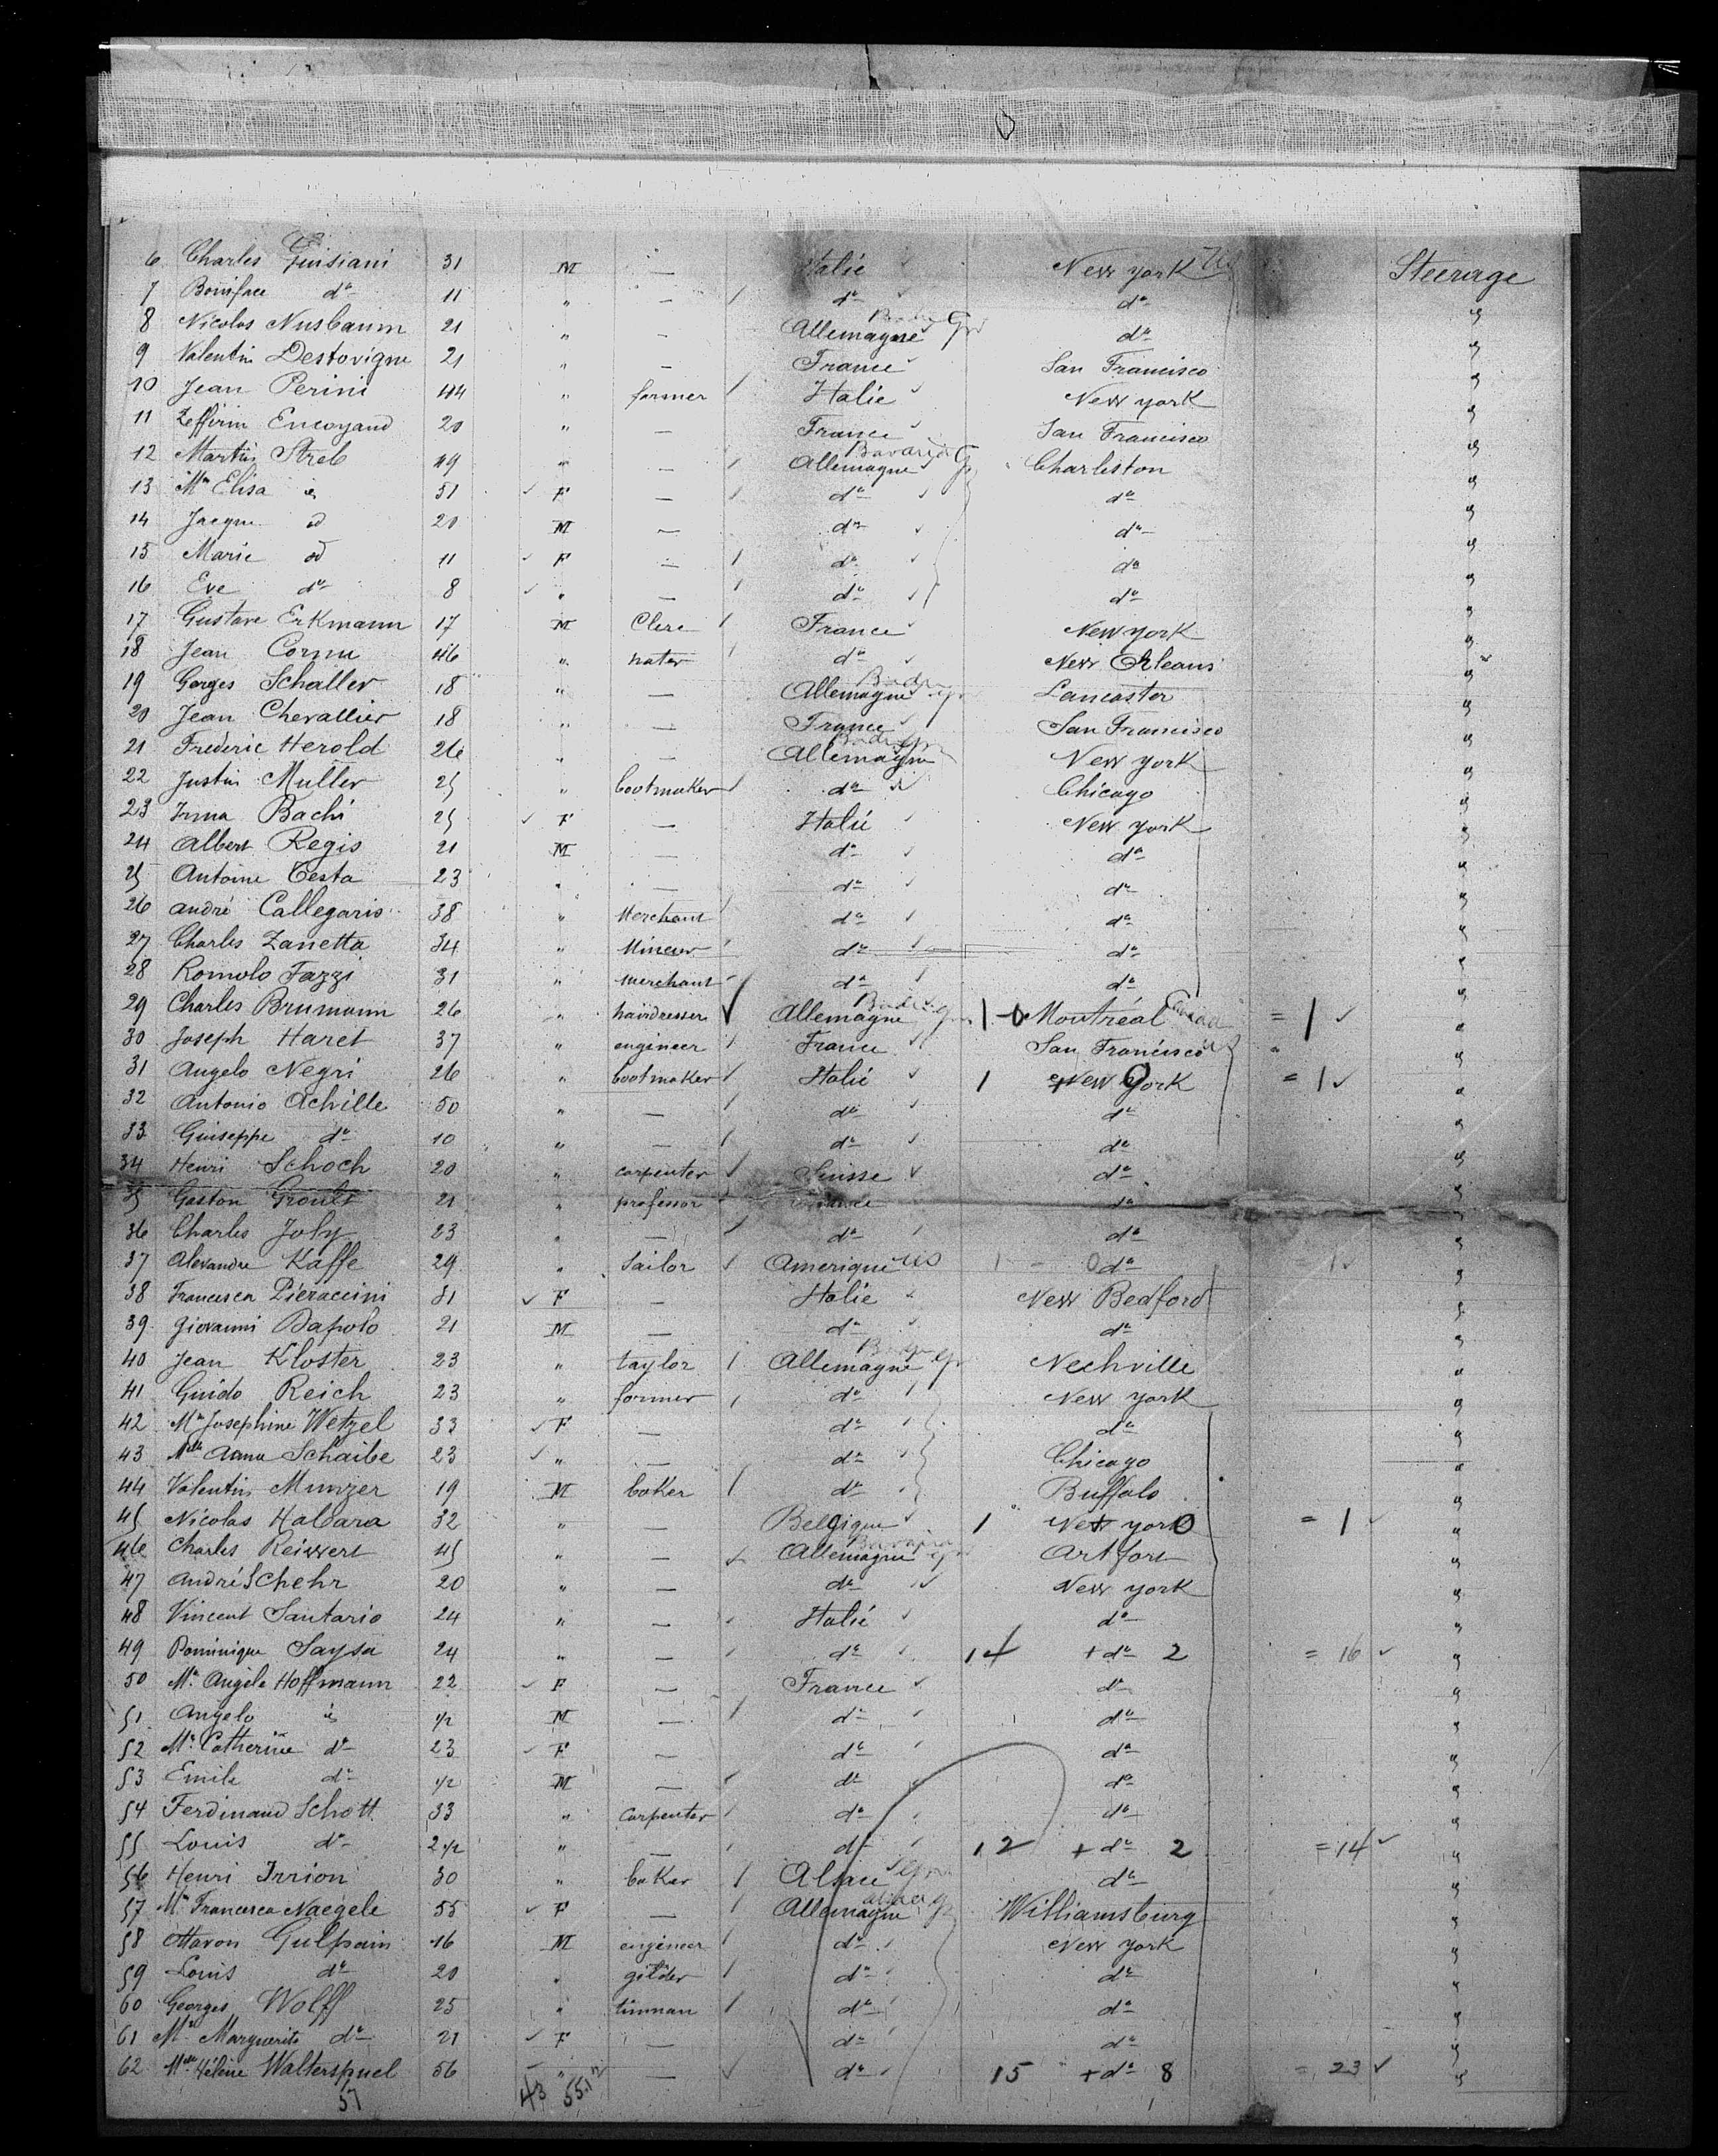 6 Charles Guisiani 31 M — Italie New York Steerage
7 Boniface do 11 " — do do "
8 Nicolas Nusbaum 21 " — Allemagne do "
9 Valentin Destovigne 21 " — France San Francisco "
10 Jean Perini 44 " farmer Italie New York "
11 Zeffirin Encoyand 20 " — France San Francisco "
12 Martin Streb 49 " — Allemagne Bavaria Charleston "
13 Me Elisa id 51 F — do do "
14 Jacque id 20 M — do do "
15 Marie id 11 F — do do "
16 Eve do 8 " — do do "
17 Gustave Erkmann 17 M Clerc France New York "
18 Jean Cornu 46 " do New Orleans "
19 Gorges Schaller 18 " — Allemagne Baden Lancaster "
20 Jean Chevallier 18 " — France San Francisco "
21 Frederic Herold 26 " — Allemagne Baden New York "
22 Justin Muller 25 " bootmaker do Chicago "
23 Irma Bachi 25 F — Italie New York "
24 Albert Regis 21 M — do do "
25 Antoine Testa 23 " — do do "
26 André Callegaris 38 " Merchant do do "
27 Charles Zanetta 34 " Mineur do do "
28 Romolo Fazzi 31 " merchant do do "
29 Charles Brumann 26 " hairdresser Allemagne Baden 1-0 Montréal Canada = 1 "
30 Joseph Haret 37 " engineer France San Francisco " "
31 Angelo Negri 26 " bootmaker Italie 1 New York 0 = 1 "
32 Antonio Achille 50 " — do do "
33 Guiseppe do 10 " — do do "
34 Henri Schoch 20 " carpenter Suisse do "
35 Gaston Groult 21 " professor France do "
36 Charles Joly 23 " — do do "
37 Alexandre Kaffe 29 " Sailor Amerique US 1 - 0 do 1 "
38 Francesca Pieraccini 31 F — Italie New Bedford "
39 Giovanni Dapolo 21 M — do do "
40 Jean Kloster 23 " taylor Allemagne Nechville "
41 Guido Reich 23 " farmer do New York "
42 Me Josephine Wetzel 33 F — do do "
43 Melle Anna Schaibe 23 " — do Chicago "
44 Valentin Munzer 19 M baker do Buffalo "
45 Nicolas Haldara 32 " — Belgique 1 New York 0 = 1 "
46 Charles Reixxert 45 " — Allemagne Bavaria Artfort "
47 André Schehr 20 " — do New York "
48 Vincent Santario 24 " — Italie do "
49 Dominique Saysa 24 " — do 14 + do 2 = 16 "
50 Me Angèle Hoffmann 22 F — France do "
51 Angelo id 1/2 M — do do "
52 Me Catherine do 23 F — do do "
53 Emile do 1/2 M — do do "
54 Ferdinand Schott 33 " carpenter do do "
55 Louis do 2 1/2 " — do 12 + do 2 = 14 "
56 Henri Irrion 30 " baker Alsace do "
57 Me Francesca Naegele 55 F — Allemagne Williamsburg "
58 Gulpain 16 M engineer do New York "
59 Louis do 20 " gilder do do "
60 Georges Wolff 25 " tinman do do "
61 Me Marguerite do 21 F — do do "
62 Melle Hélène Walterspuel 56 " — do 15 + do 8 = 23 "
57 43 55.1/2